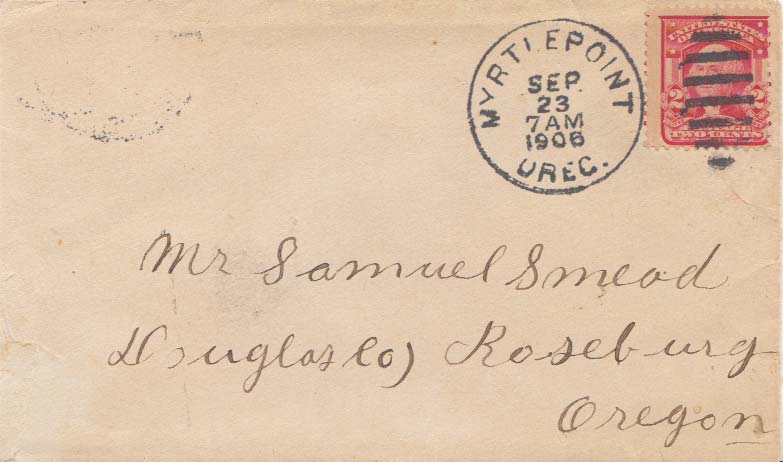 MYRTLEPOINT
SEP
23
7AM
1906
OREG.
UNITED STATES
OF AMERICA
2 2
TWO CENTS
Mr Samuel Smead
Douglas Co) Roseburg
Oregon